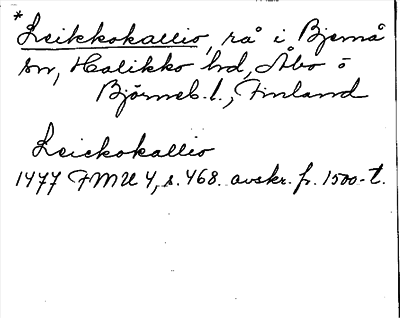 *Leikkokallio, rå i Bjernå
sn, Halikko hd, Åbo o
Björneb. l., Finland
Leickokallio
1477 FMU 4, s. 468. avskr. fr. 1500-t.